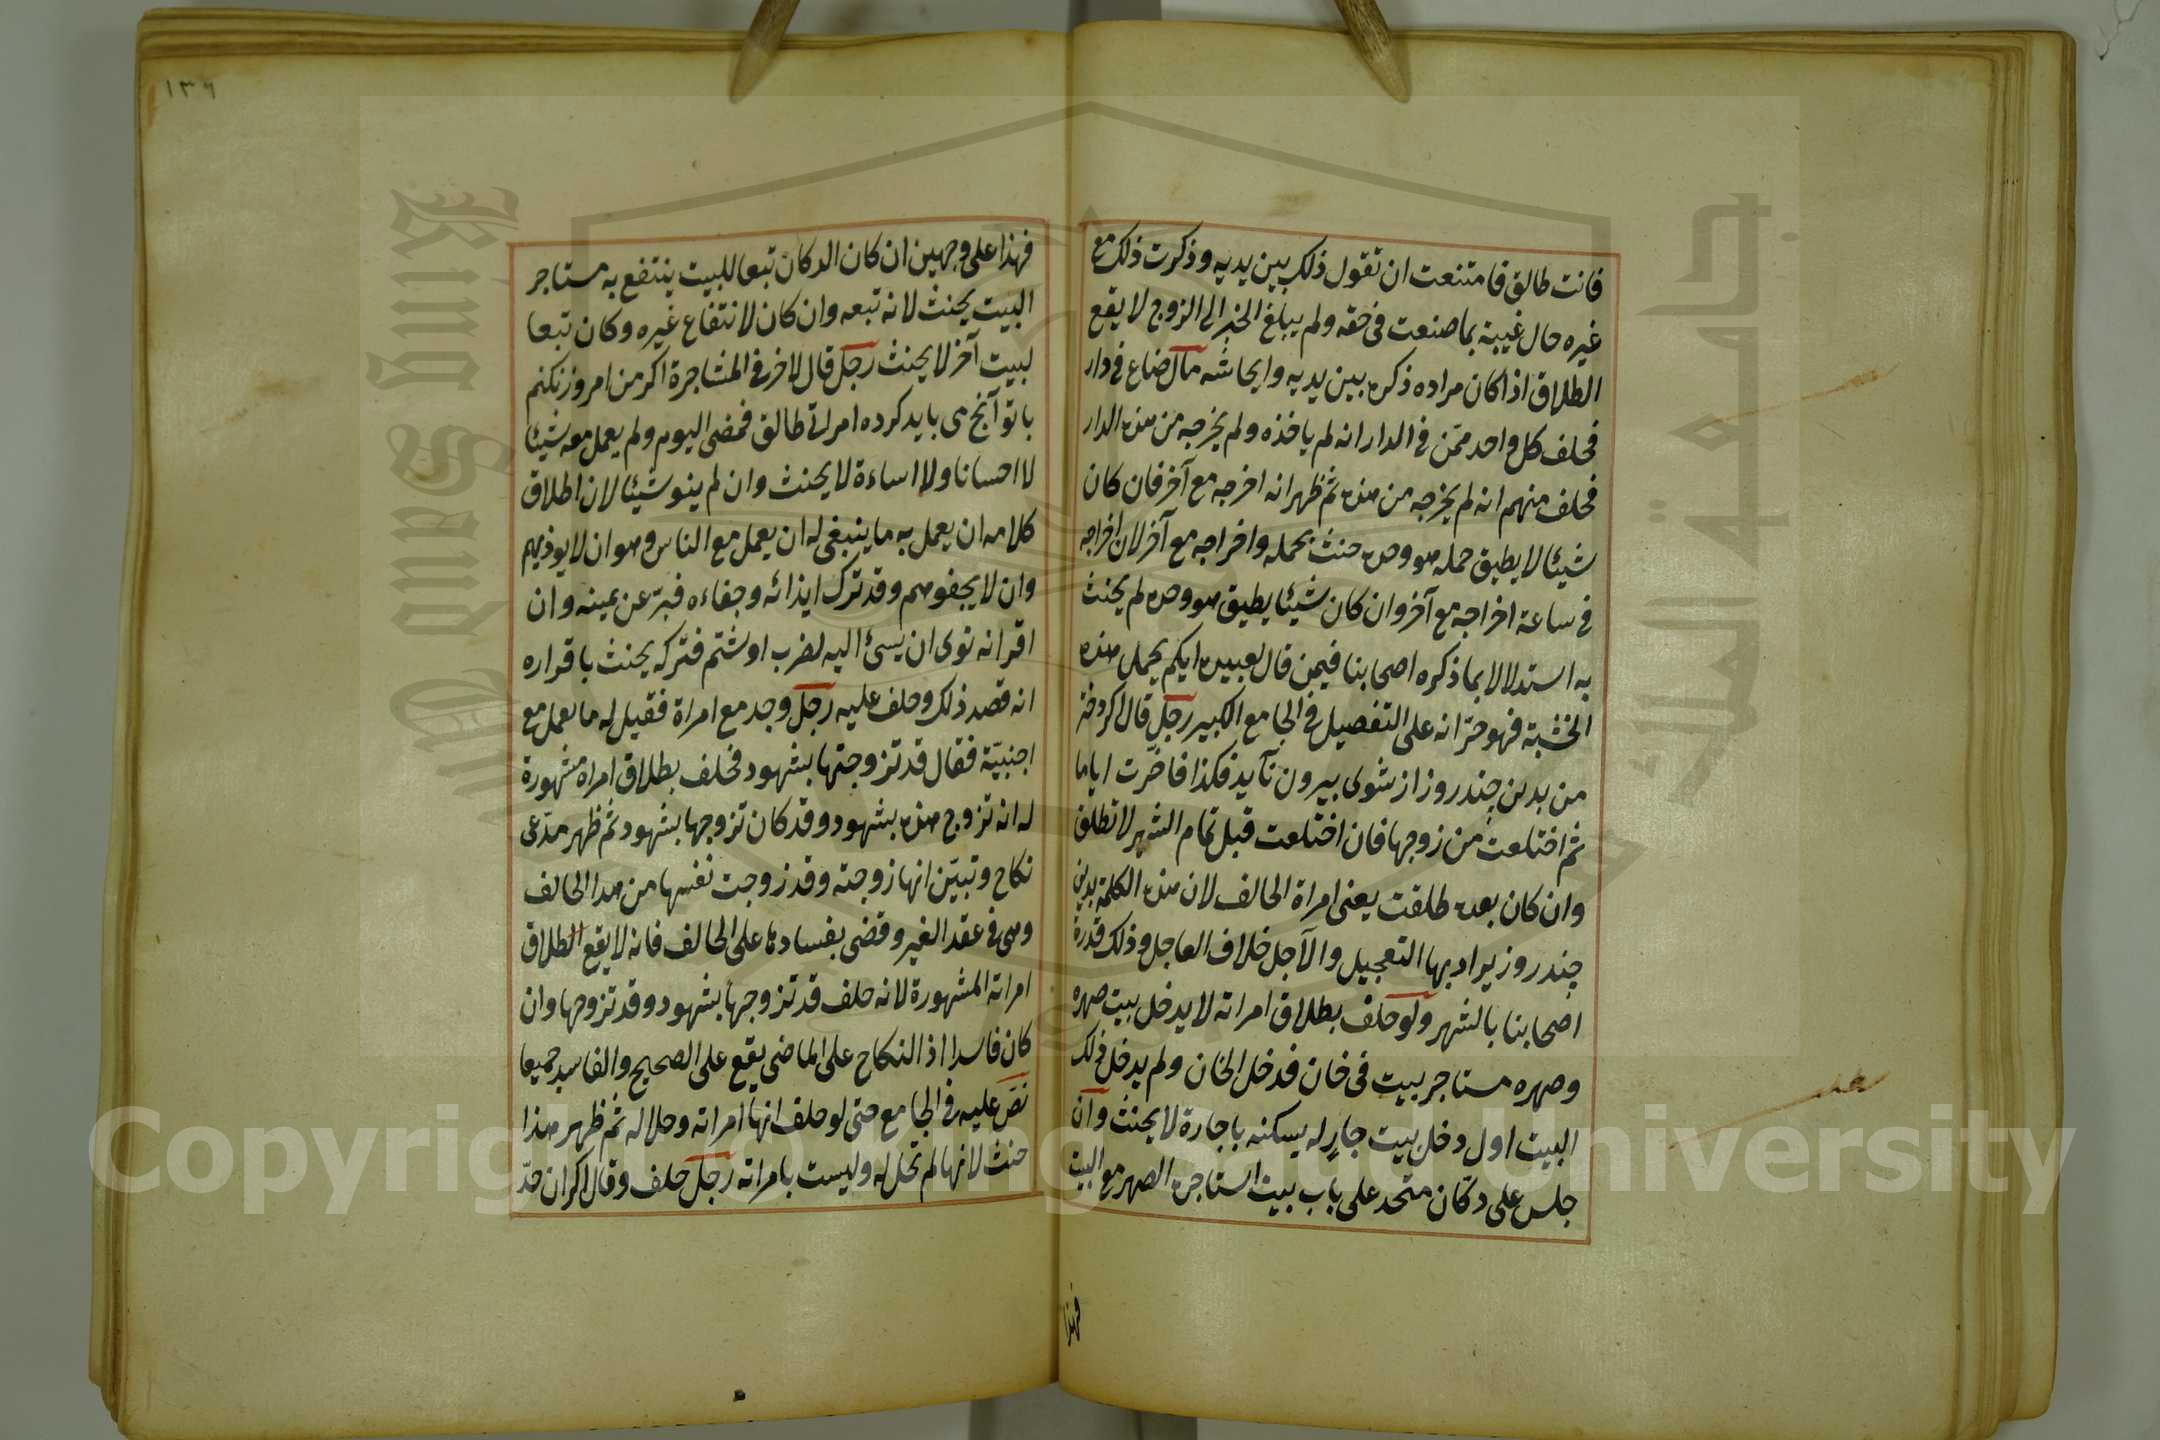 فانت طالق فامتنعت ان تقول ذلك بين يديه وذكرت ذلك مع
غيره حال غيبته بما صنعت فى حقه ولم يبلغ الخبر الى الزوج لا يقع
الطلاق اذا كان مراده ذكره بين يديه وايحاشه مال ضاع فى دار
فحلف كل واحد ممّن فى الدار انه لم ياخذه ولم يخرجه من هذه الدار
فحلف منهم انه لم يخرجه من هذه ثم ظهر انه اخرجه مع آخر فان كان
شيئا لا يطيق حمله هو وحده حنث بحمله واخراجه مع آخر لان اخراجه
فى ساعة اخراجه مع آخر وان كان شيئا يطيق هو وحده لم يحنث
به استدلالا بما ذكره اصحابنا فيمن قال لعبيده ايكم يحمل هذه
الخشبة فهو حرّ انه على التفصيل فى الجامع الكبير رجل قال كر دختر
من بدين چند روز از شوى بيرون نآيد فكذا فاخّرت اياما
ثم اختلعت من زوجها فان اختلعت قبل تمام الشهر لا تطلق
وان كان بعده طلقت يعنى امراة الحالف لان هذه الكلمة بدين
چند روز يراد بها التعجيل والآجل خلاف العاجل وذلك قدره
اصحابنا بالشهر ولو حلف بطلاق امراته لا يدخل بيت صهره
وصهره مستاجر بيت فى خان فدخل الخان ولم يدخل ذلك
البيت اول دخل بيت جارٍ له يسكنه باجارة لا يحنث وان
جلس على دكّان متحد على باب بيت استاجره الصهر مع البيت
فهذا
١٣٦
فهذا على وجهين ان كان الدكان تبعا للبيت ينتفع به مستاجر
البيت يحنث لانه تبعه وان كان لانتفاع غيره وكان تبعا
لبيت آخر لا يحنث رجل قال لاخر فى المشاجرة اكر من امروز نكنم
با تو آنچ مى بايد كرده امراتى طالق فمضى اليوم ولم يعمل معه شيئا
لا احسانا ولا اساءة لا يحنث وان لم ينو شيئا لان اطلاق
كلامه ان يعمل به ما ينبغى له ان يعمل مع الناس وهو ان لا يوذيهم
وان لا يجفوهم وقد ترك ايذائه وجفاءه فبرّ عن يمينه وان
اقر انه نوى ان يسئ اليه لضرب او شتم فتركه يحنث باقراره
انه قصد ذلك وحلف عليه رجل وجد مع امراة فقيل له ما تعمل مع
اجنبيّة فقال قد تزوجتها بشهود فحلف بطلاق امراة مشهورة
له انه تزوج هذه بشهود وقد كان تزوجها بشهود ثم ظهر مدّعى
نكاح وتبيّن انها زوجته وقد زوجت نفسها من هذا الحالف
وهى فى عقد الغير وقضى بفسادها على الحالف فانه لا يقع الطلاق
امراته المشهورة لانه حلف قد تزوجها بشهود وقد تزوجها وان
كان فاسدا اذ النكاح على الماضى يقع على الصحيح والفاسد جميعا
نصّ عليه فى الجامع حتى لو حلف انها امراته وحلاله ثم ظهر هذا
حنث لانها لم تحل له وليست بامراته رجل حلف وقال اكر ان حدّ
Copyright © King Saud University
King Saud University
جامعة الملك سعود